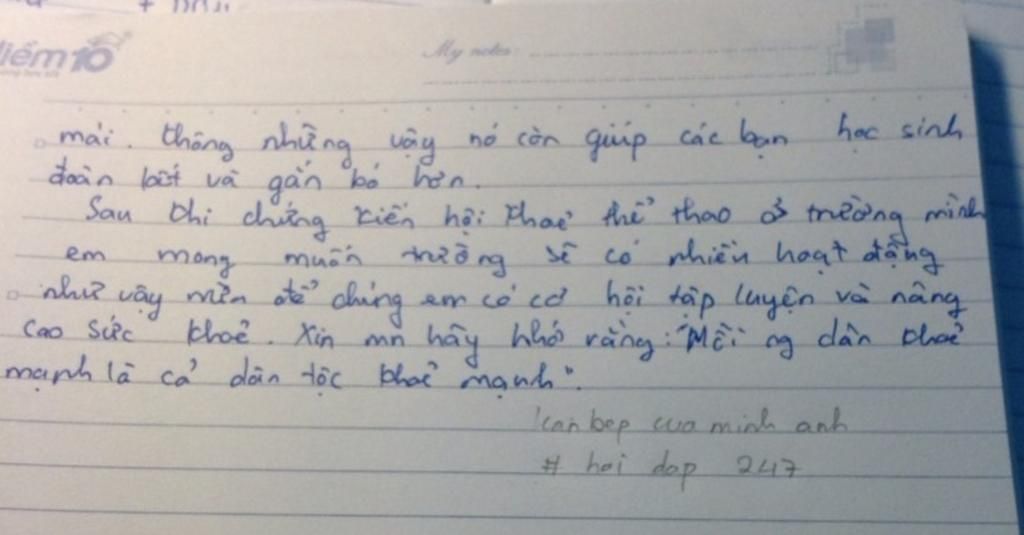 iểm10
My notes
mái. thông những vậy nó còn giúp các bạn học sinh
đoàn kết và gắn bó hơn.
Sau khi chứng kiến hội khoẻ thể thao ở trường mình
em mong muốn trường sẽ có nhiều hoạt động
như vậy nữa để chúng em có cơ hội tập luyện và nâng
cao sức khoẻ. Xin mn hãy nhớ rằng: "Mỗi ng dân khoẻ
mạnh là cả dân tộc khoẻ mạnh".
can bep cua minh anh
# hoi dap 247